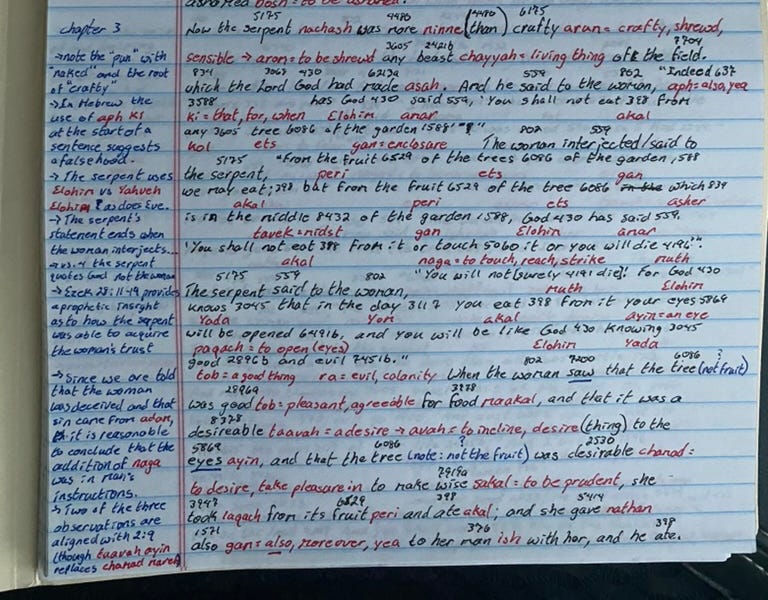 ashamed bosh = to be ashamed.
chapter 3
5175 4480 (4480) 6175
Now the serpent nachash was more minne (than) crafty arun = crafty, shrewd,
3605 2421b 7704
sensible → arom = to be shrewd any beast chayyah = living thing of the field.
834 3068 430 6213a 559 802 "Indeed 637
which the Lord God had made asah. And he said to the woman, aph = also, yea
3588 has God 430 said 559, 'You shall not eat 398 from
ki = that, for, when Elohim amar akal
any 3605 tree 6086 of the garden 1588'"?" 802 559
kol ets gan = enclosure The woman interjected/said to
5175 "From the fruit 6529 of the trees 6086 of the garden, 1588
the serpent, peri ets gan
we may eat; 398 but from the fruit 6529 of the tree 6086 in the which 834
akal peri ets asher
is in the middle 8432 of the garden 1588, God 430 has said 559.
tavek = midst gan Elohim amar
'You shall not eat 398 from it or touch 5060 it or you will die 4191'".
akal naga = to touch, reach, strike muth
5175 559 802 "You will not [surely 4191 die]! For God 430
The serpent said to the woman, muth Elohim
knows 3045 that in the day 3117 you eat 398 from it your eyes 5869
Yada Yom akal ayin = an eye
will be opened 6491b, and you will be like God 430 knowing 3045
paqach = to open (eyes) Elohim Yada
good 2896b and evil 7451b." 802 7200 6086 ?
tob = a good thing ra = evil, calamity When the woman saw that the tree (not fruit)
2896a 3978
was good tob = pleasant, agreeable for food maakal, and that it was a
8378
desireable taavah = a desire → avah = to incline, desire (thing) to the
5869 6086 ? 2530
eyes ayin, and that the tree (note: not the fruit) was desirable chamad =
7919a
to desire, take pleasure in to make wise sakal = to be prudent, she
3947 6529 398 5414
took laqach from its fruit peri and ate akal; and she gave nathan
1571 376 398
also gam = also, moreover, yea to her man ish with her, and he ate.
→ note the "pun" with
"naked" and the root
of "crafty"
→ In Hebrew the
use of aph ki
at the start of a
sentence suggests
a falsehood.
→ The serpent uses
Elohim vs Yahveh
Elohim as does Eve.
→ The serpent's
statement ends when
the woman interjects...
→ vs. 4 the serpent
quotes God not the woman
→ Ezek 28:11-19 provides
a prophetic insight
as to how the serpent
was able to acquire
the woman's trust
→ Since we are told
that the woman
was deceived and that
sin came from adam,
it is reasonable
to conclude that the
addition of naga
was in man's
instructions.
→ Two of the three
observations are
aligned with 2:9
(though taavah ayin
replaces chamad mareh)